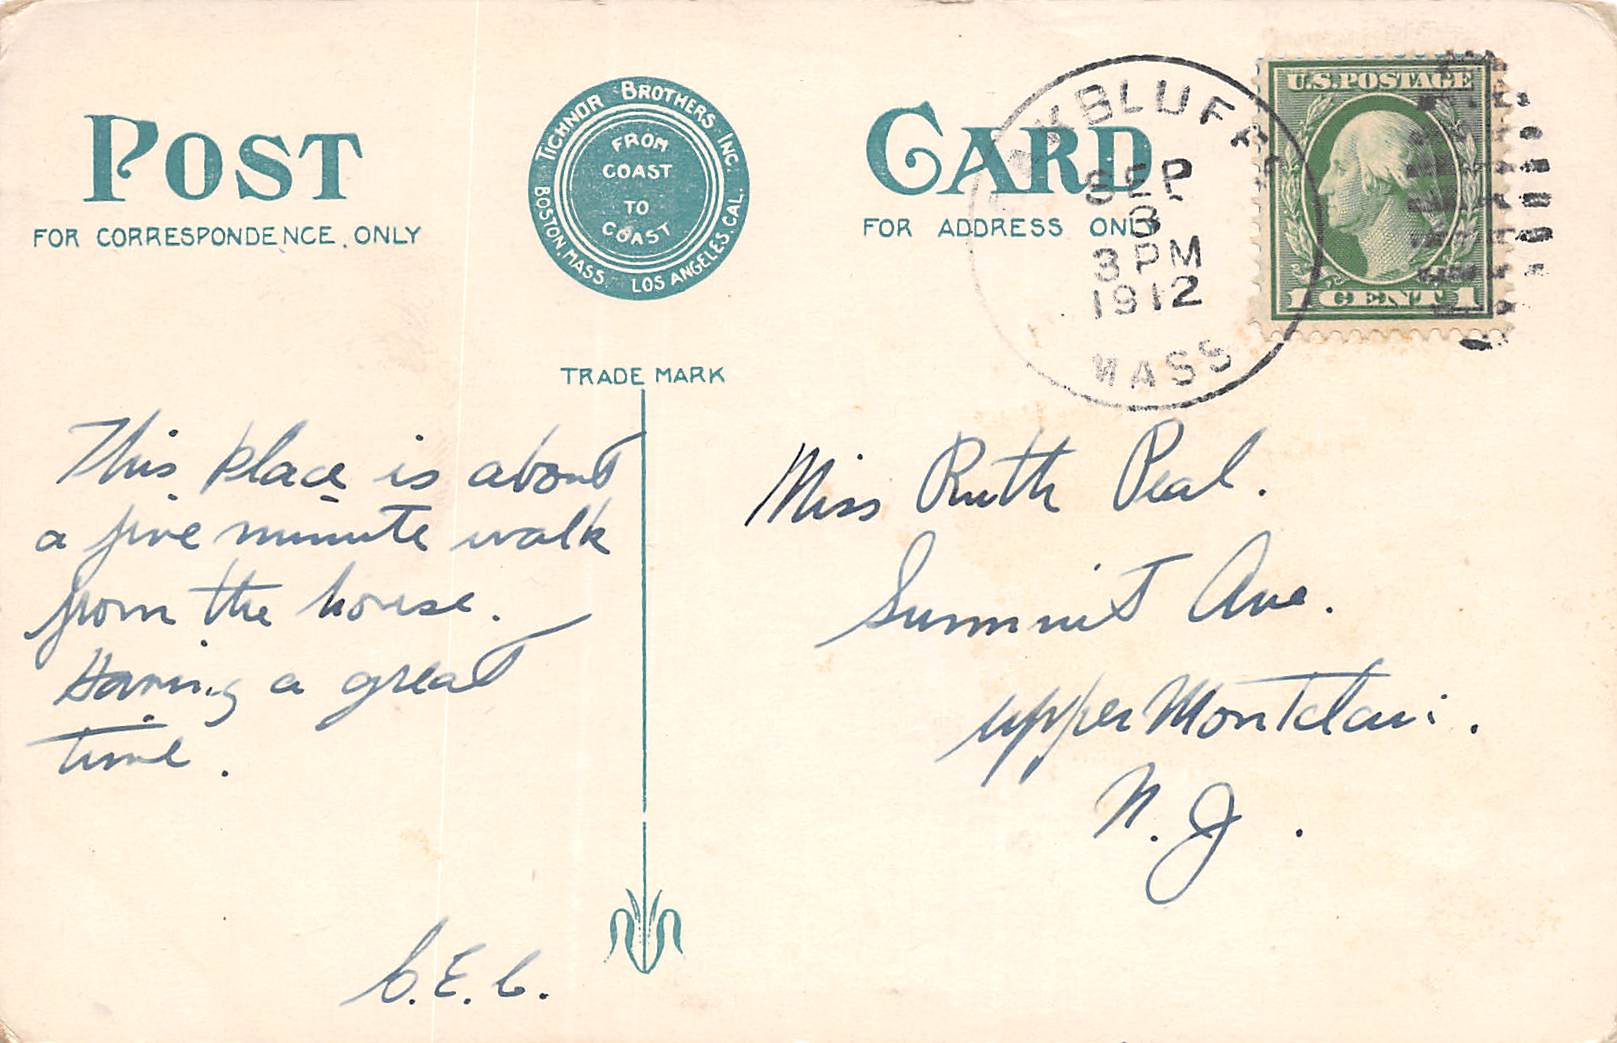 POST CARD
FOR CORRESPONDENCE ONLY
TICHNOR BROTHERS INC.
BOSTON, MASS. LOS ANGELES, CAL.
FROM
COAST
TO
COAST
TRADE MARK
FOR ADDRESS ONLY
KBLUFFS
SEP
3
3 PM
1912
MASS
U.S. POSTAGE
1 CENT 1
This place is about
a five minute walk
from the house.
Having a great
time.
C.E.C.
Miss Ruth Peal.
Summit Ave.
Upper Montclair.
N.J.